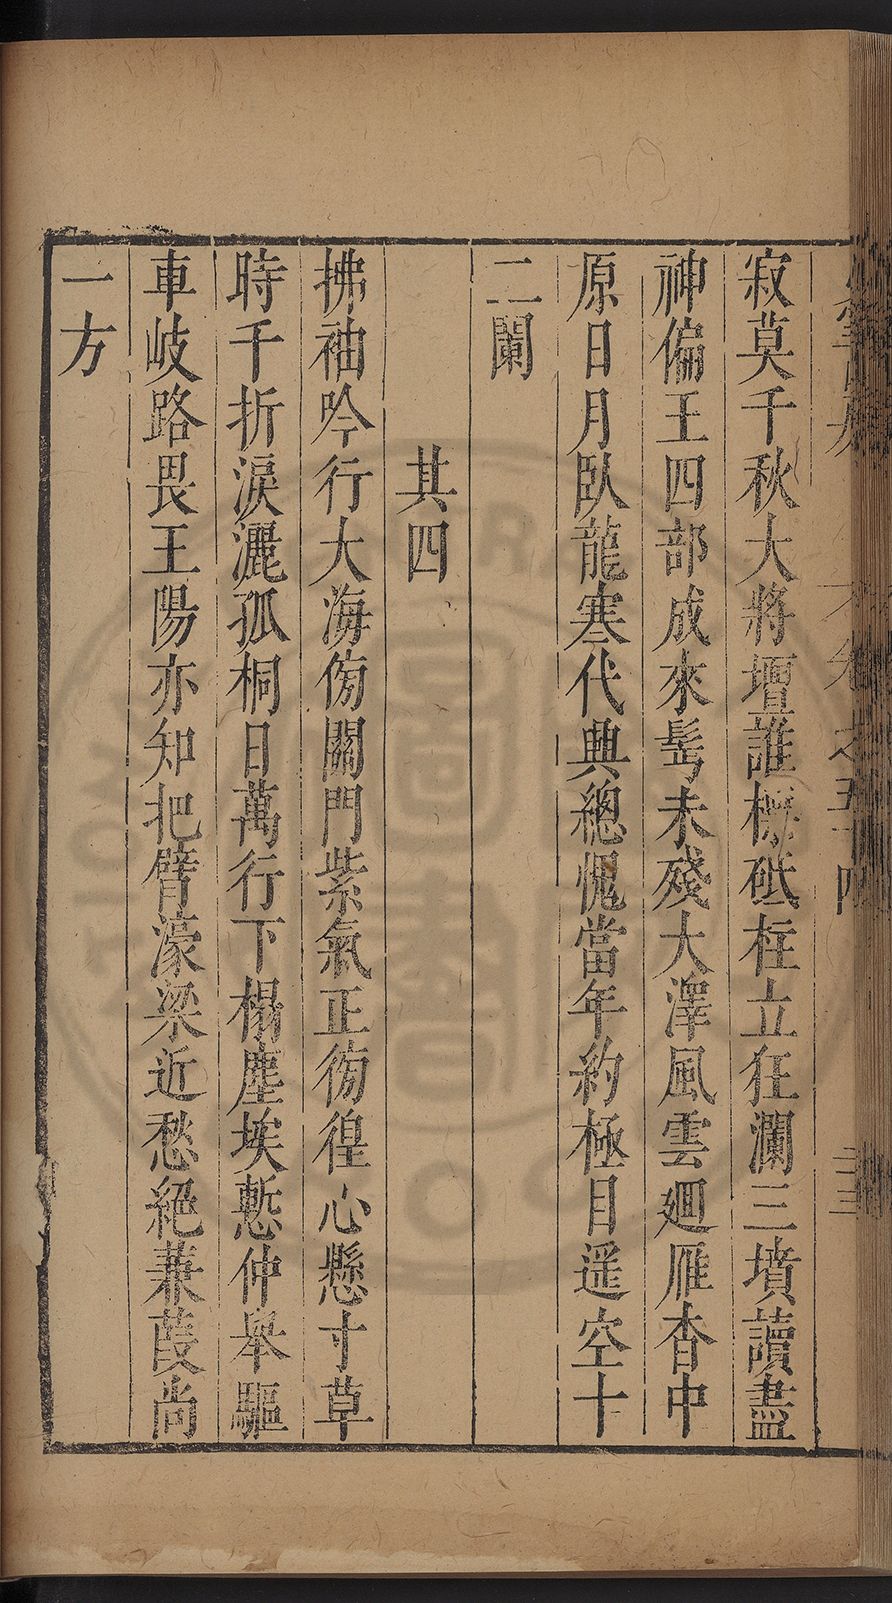 寂莫千秋大將壇誰標砥柱立狂瀾三墳讀盡
神偏王四部成來髩未殘大澤風雲廻雁杳中
原日月臥龍寒代興總愧當年約極目遥空十
二闌
其四
拂袖吟行大海傍關門紫氣正徬徨心懸寸草
時千折淚灑孤桐日萬行下榻塵埃慙仲舉驅
車岐路畏王陽亦知把臂濠梁近愁絕蒹葭尚
一方
卷之五十四